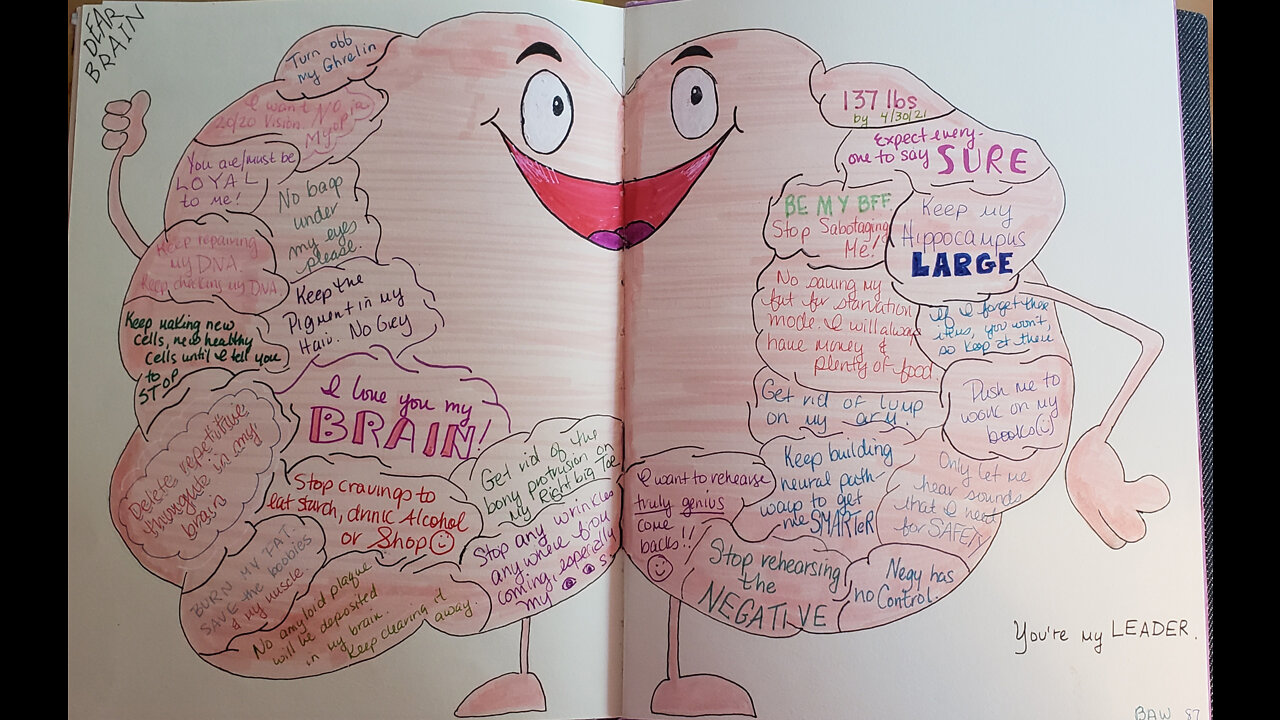 DEAR
BRAIN
Turn obb
my Ghrelin
I want NO
20/20 Vision. Myopia
You are/must be
LOYAL
to me!
No bago
under
my eyes
please.
Keep repairing
my DNA.
Keep checking my DNA
Keep the
Pigment in my
Hair. No Grey
Keep making new
cells, new healthy
Cells until I tell you
to
STOP
I love you my
BRAIN!
Delete repetitive
thoughts in my
brain
Stop cravings to
eat Starch, drink Alcohol
or Shop
Get rid of the
bony protrusion on
my Right big Toe
BURN MY FAT.
SAVE the boobies
& my muscle.
No amyloid plaque
will be deposited
in my brain.
Keep clearing it
away.
Stop any wrinkles
anywhere from
coming, especially
my
s
137 lbs
by 4/30/21
Expect every-
one to say SURE
BE MY BFF
Stop Sabotaging
Me!
Keep my
Hippocampus
LARGE
No saving my
fat for starvation
mode. I will always
have money &
plenty of food.
If I forget these
items, you won't,
so keep at them
Get rid of lump
on my arm.
Push me to
work on my
books(:)
I want to rehearse
truly genius
come
backs!!
Keep building
neural path-
ways to get
me SMARTeR
Only let me
hear sounds
that I need
for SAFETY
Stop rehearsing
the
NEGATIVE
Negy has
no Control.
You're my LEADER.
BAW 87